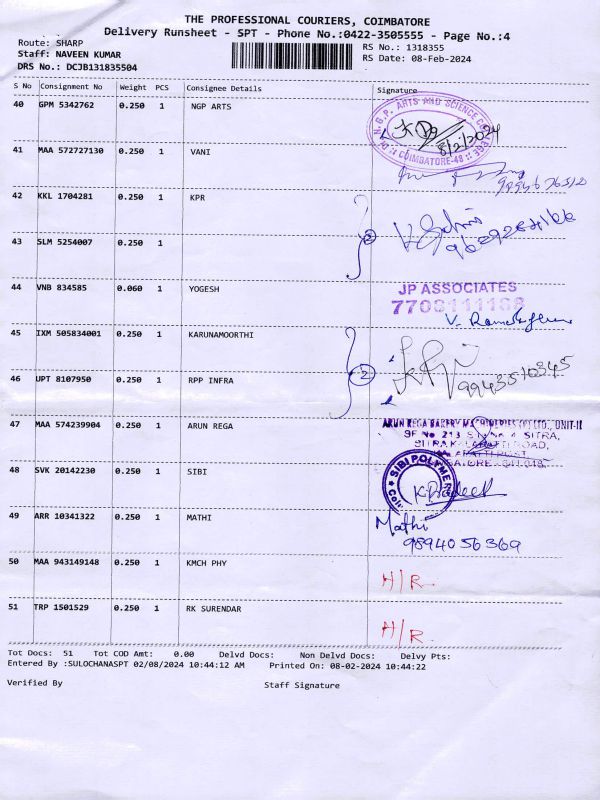 THE PROFESSIONAL COURIERS, COIMBATORE
Delivery Runsheet - SPT - Phone No.:0422-3505555 - Page No.:4
Route: SHARP
RS No.: 1318355
Staff: NAVEEN KUMAR
RS Date: 08-Feb-2024
DRS No.: DCJB131835504
S No Consignment No Weight PCS Consignee Details Signature
40 GPM 5342762 0.250 1 NGP ARTS
N.G.P. ARTS AND SCIENCE COLLEGE
8/2/2024
COIMBATORE-48
41 MAA 572727130 0.250 1 VANI
42 KKL 1704281 0.250 1 KPR
43 SLM 5254007 0.250 1
44 VNB 834585 0.060 1 YOGESH
JP ASSOCIATES
45 IXM 505834001 0.250 1 KARUNAMOORTHI
2
9943510345
46 UPT 8107950 0.250 1 RPP INFRA
47 MAA 574239904 0.250 1 ARUN REGA
ARUN REGA BAKERY MACHINERIES (P) LTD., UNIT-II
SF No 213
SITRA,
48 SVK 20142230 0.250 1 SIBI
SIBI POLYMER
K. Pradeek
49 ARR 10341322 0.250 1 MATHI
Mathi
9894056369
50 MAA 943149148 0.250 1 KMCH PHY
H/R
51 TRP 1501529 0.250 1 RK SURENDAR
H/R.
Tot Docs: 51 Tot COD Amt: 0.00 Delvd Docs: Non Delvd Docs: Delvy Pts:
Entered By :SULOCHANASPT 02/08/2024 10:44:12 AM Printed On: 08-02-2024 10:44:22
Verified By Staff Signature